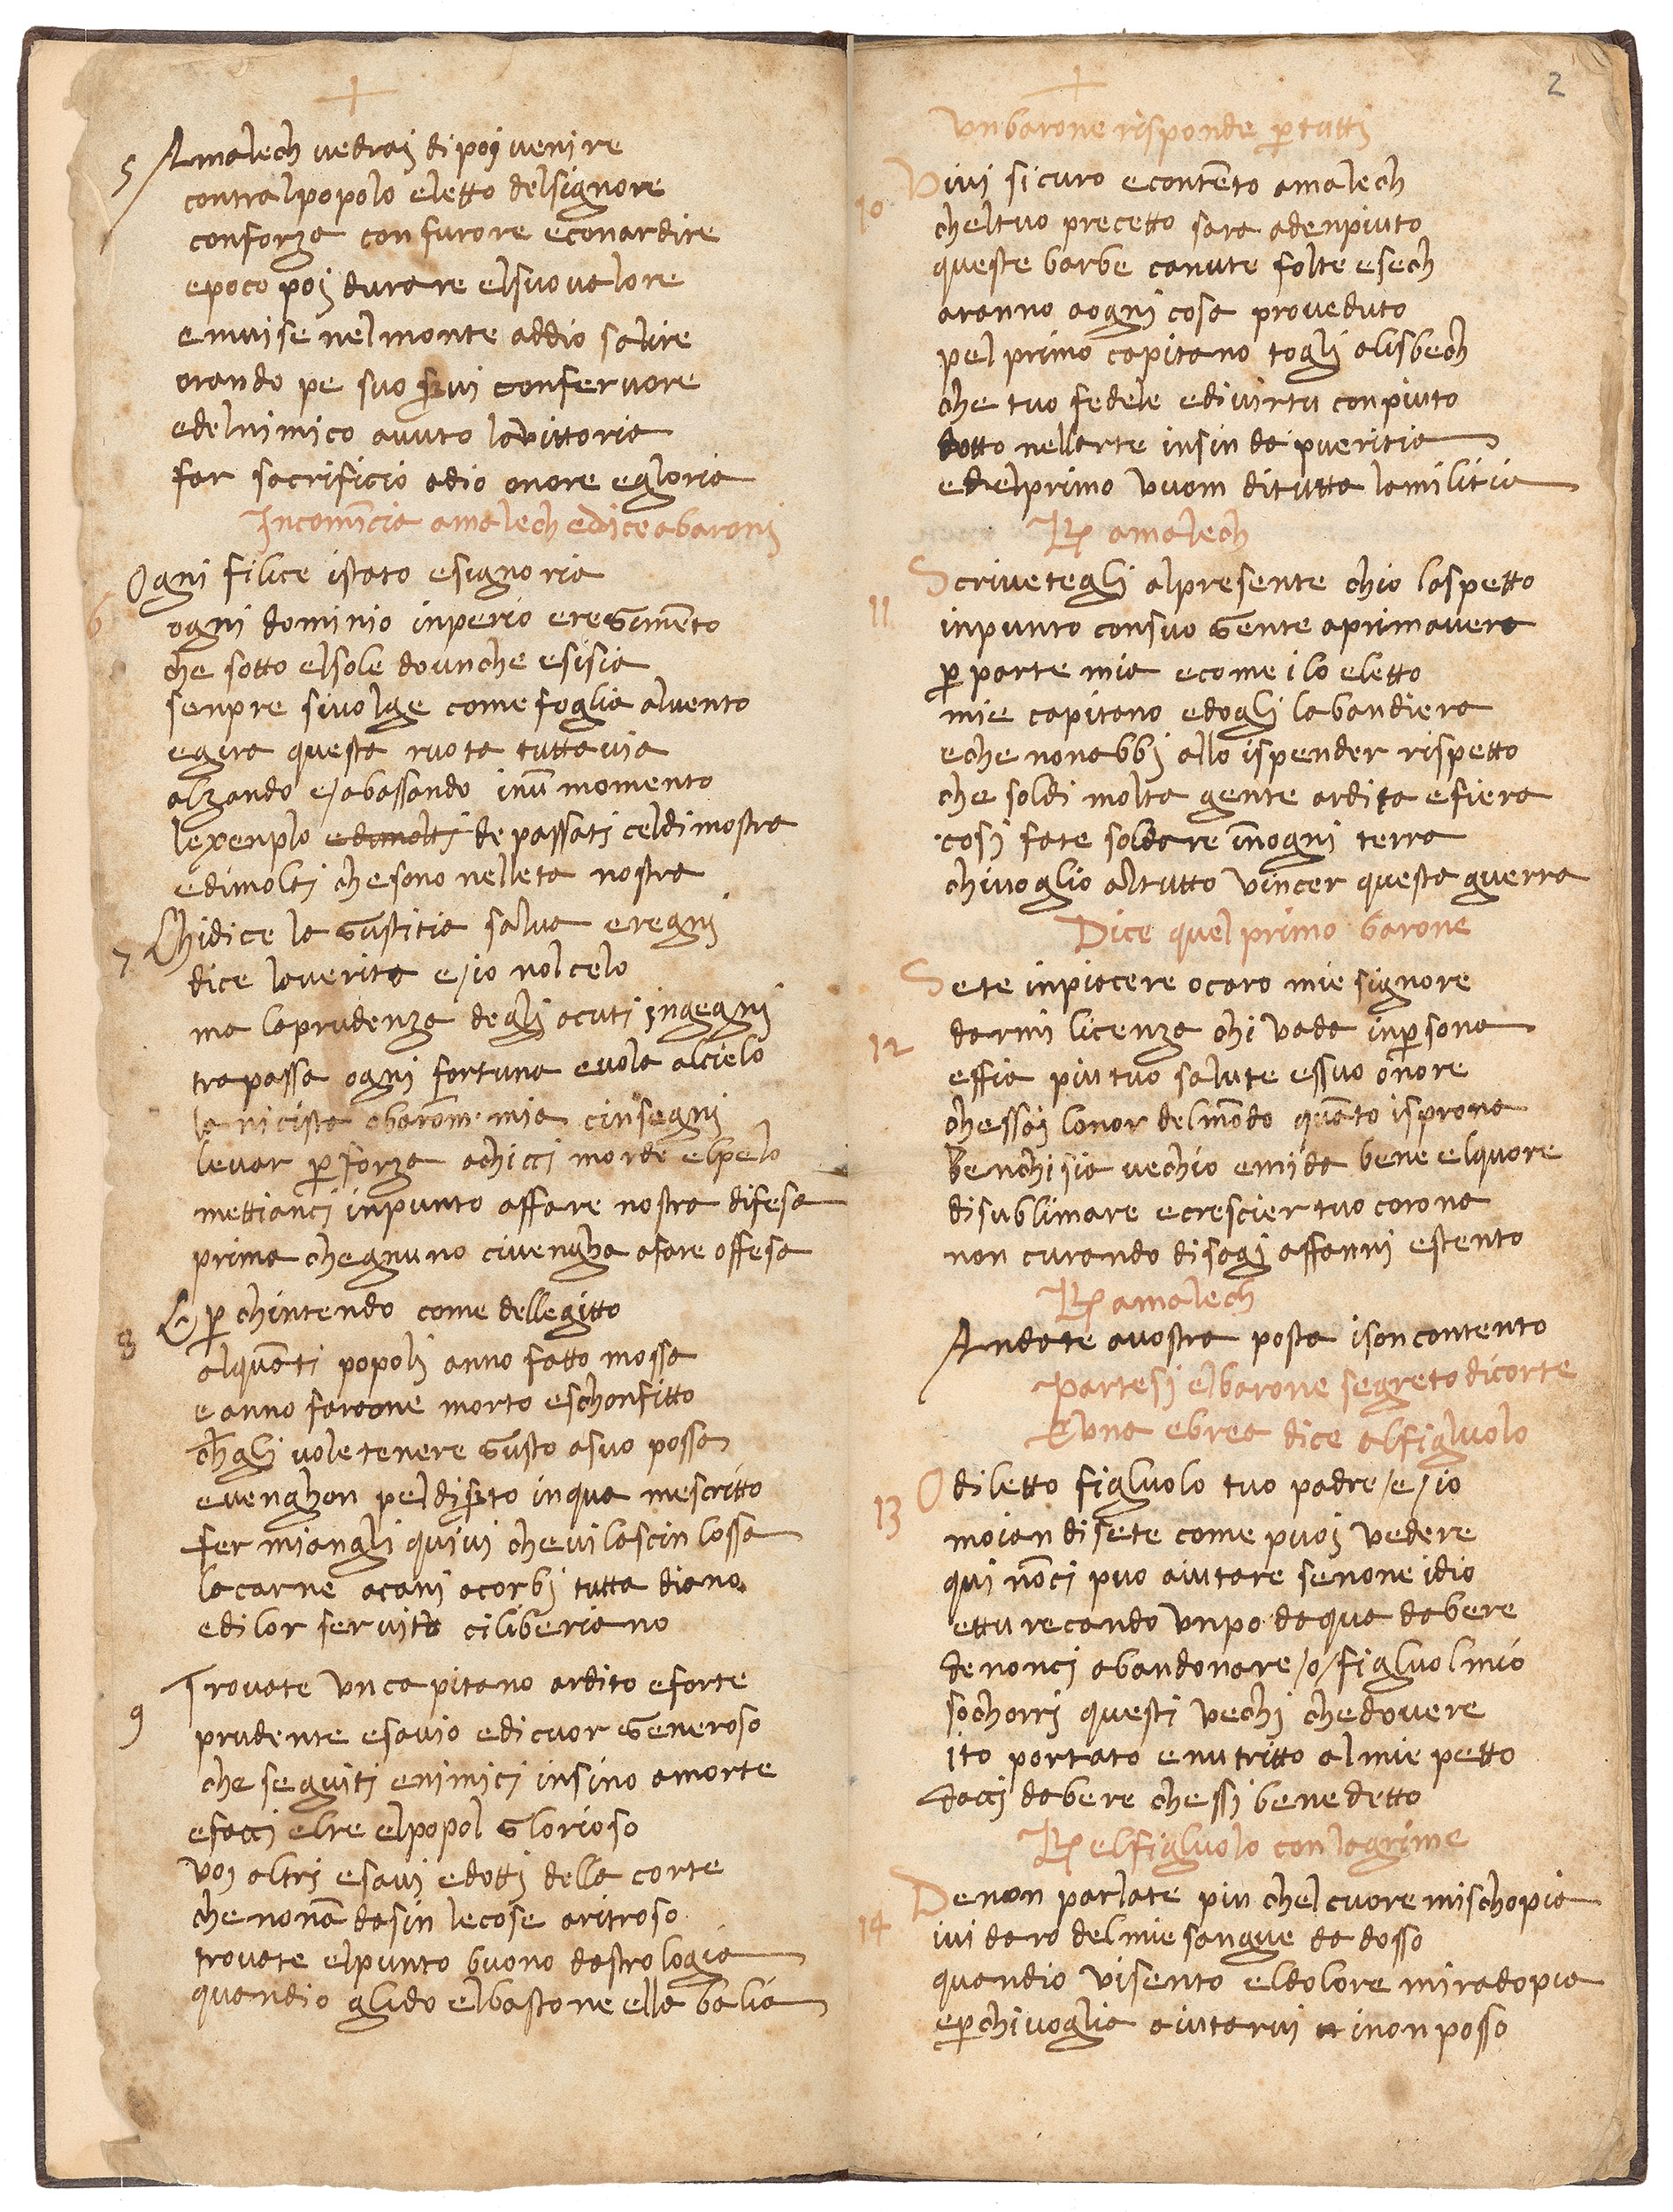 5 Amalech vedraj dipoj venire
contralpopolo eletto delsignore
conforza con furore econardire
epoco poj durare elsuovalore
emuise nelmonte addio salire
orando pe suo serui confervore
edelnimico avuto lavittoria
far sacrificio adio onore egloria
Incomīcia amalech edice abaronj
Ogni filice istato esignoria
6 ogni dominio inperio eregimēto
che sotto elsole dounche esisia
senpre siuolge come foglia alvento
egira questa ruota tuttavia
alzando e/abassando inū momento
lexenplo edimoltj de passati celdimostra
edimoltj chesono nelleta nostra
7 Chidice la giustitia salua eregnj
dice laverita e/io nolcelo
ma laprudenza deglj acuti jngegnj
trapassa ognj fortuna euola alcielo
la nicista abarom mia cinsegnj
levar p̄ forza achicci morde elpelo
mettiancj inpunto affare nostra difesa
prima chegnuno civengha afare offesa
8 E p̄ chintendo come dellegitto
alquāti popolj anno fatto mossa
e anno faraone morto eschonfitto
ch̄glj uoletenere giusto asuo possa
evenghon peldiserto inqua mescritto
fer mianglj quivi chevilascin lossa
lacarne acani acorbj tutta diano
edilor servitu ciliberiano
9 Trovate vncapitano ardito eforte
prudente esavio edicuor generoso
che seguiti enimicj insino amorte
efaccj elre elpopol glorioso
voj altrj esavj edottj della corte
che nonā dasin lecose aritroso
trovate elpunto buono dastrologia
quandio glido elbastone ella balia
2
vnbarone risponde p̄ tuttj
10 Viui sicuro econtēto amalech
cheltuo precetto sara adenpiuto
queste barbe canute folte esech
aranno aogni cosa proveduto
pel primo capitano toglj alisbech
che tuo fedele edivirtu conpiuto
dotto nellarte insin da pueritia
edelprimo vuom ditutta lamilitia
R̄ amalech
11 Scriveteglj alpresente chio laspetto
inpunto consuo gente aprimavera
p̄ parte mia ecome ilo eletto
mie capitano edoglj labandiera
eche nonabbj allo ispender rispetto
che soldi molta gente ardita efiera
cosi fate soldare inogni terra
chivoglio altutto vincer questa guerra
Dice quelprimo barone
Sete inpiacere ocaro mie signore
12 darmi licenza chi vada inp̄sona
effia piu tuo salute essuo onore
chessaj lonor delmōdo quāto isprona
benchisia vechio emida bene elquore
disublimare ecrescier tuo corona
non curando disagj affanni estento
R̄ amalech
Andate avostra posta ison contento
Partesj elbarone segreto dicorte
Evna ebrea dice alfigluolo
13 O diletto figluolo tuo padre/e/io
moian disete come puoj vedere
qui nōci puo aiutare senone idio
ettu recando vnpo daqua dabere
denoncj abandonare/o/figluolmio
sochorri questi vechj chedovere
ito portato enutritto almie petto
daccj dabere chessj benedetto
R̄ elfigluolo conlagrime
14 Denon parlate piu chelcuore mischopia
ivi daro delmie sangue da dosso
quandio visento eldolore miradopia
ep̄chivoglia aiutarvi inonposso